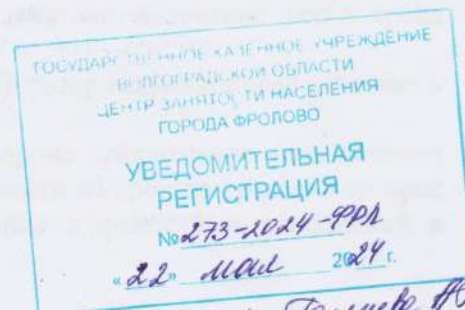 ГОСУДАРСТВЕННОЕ КАЗЕННОЕ УЧРЕЖДЕНИЕ
ВОЛГОГРАДСКОЙ ОБЛАСТИ
ЦЕНТР ЗАНЯТОСТИ НАСЕЛЕНИЯ
ГОРОДА ФРОЛОВО
УВЕДОМИТЕЛЬНАЯ
РЕГИСТРАЦИЯ
№ 273-2024-ФРЛ
«22» мая 2024 г.